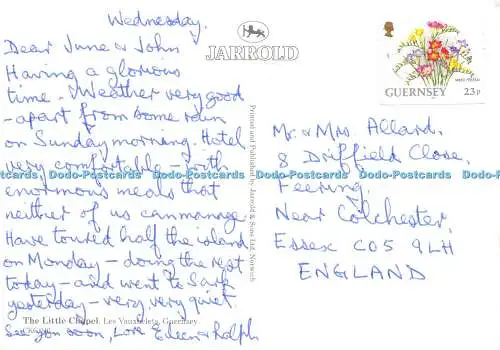 Wednesday.
Dear June & John
Having a glorious
time. Weather very good
- apart from some rain
on Sunday morning. Hotel
very comfortable - with
enormous meals that
neither of us can manage.
Have toured half the island
on Monday - doing the rest
today - and went to Sark
yesterday - very, very quiet.
See you soon, Love Eileen & Ralph
The Little Chapel, Les Vauxbelets, Guernsey
JARROLD
Printed and Published by Jarrold & Sons Ltd, Norwich
GUERNSEY
23p
Mr. & Mrs. Allard,
8 Driffield Close,
Feering,
Near Colchester,
Essex CO5 9LH
ENGLAND
Dodo-Postcards Dodo-Postcards Dodo-Postcards Dodo-Postcards